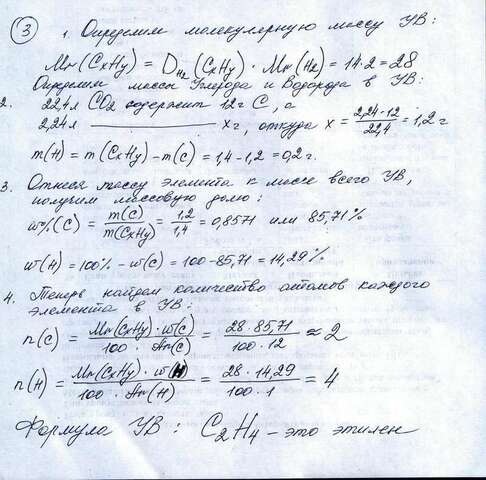 3
1. Определим молекулярную массу УВ:
Mr(CxHy) = DH₂(CxHy) · Mr(H₂) = 14·2 = 28
Определим массы Углерода и Водорода в УВ:
2. 22,4л CO₂ содержит 12г C, а
2,24л ———— xг, откуда x = 2,24·12/22,4 = 1,2г
m(H) = m(CxHy) - m(C) = 1,4 - 1,2 = 0,2г.
3. Отнеся массу элемента к массе всего УВ,
получим массовую долю:
w%(C) = m(C)/m(CxHy) = 1,2/1,4 = 0,8571 или 85,71%
w(H) = 100% - w(C) = 100 - 85,71 = 14,29%
4. Теперь найдем количество атомов каждого
элемента в УВ:
n(C) = Mr(CxHy)·w(C)/100·Ar(C) = 28·85,71/100·12 ≈ 2
n(H) = Mr(CxHy)·w(H)/100·Ar(H) = 28·14,29/100·1 = 4
Формула УВ: C₂H₄ - это этилен